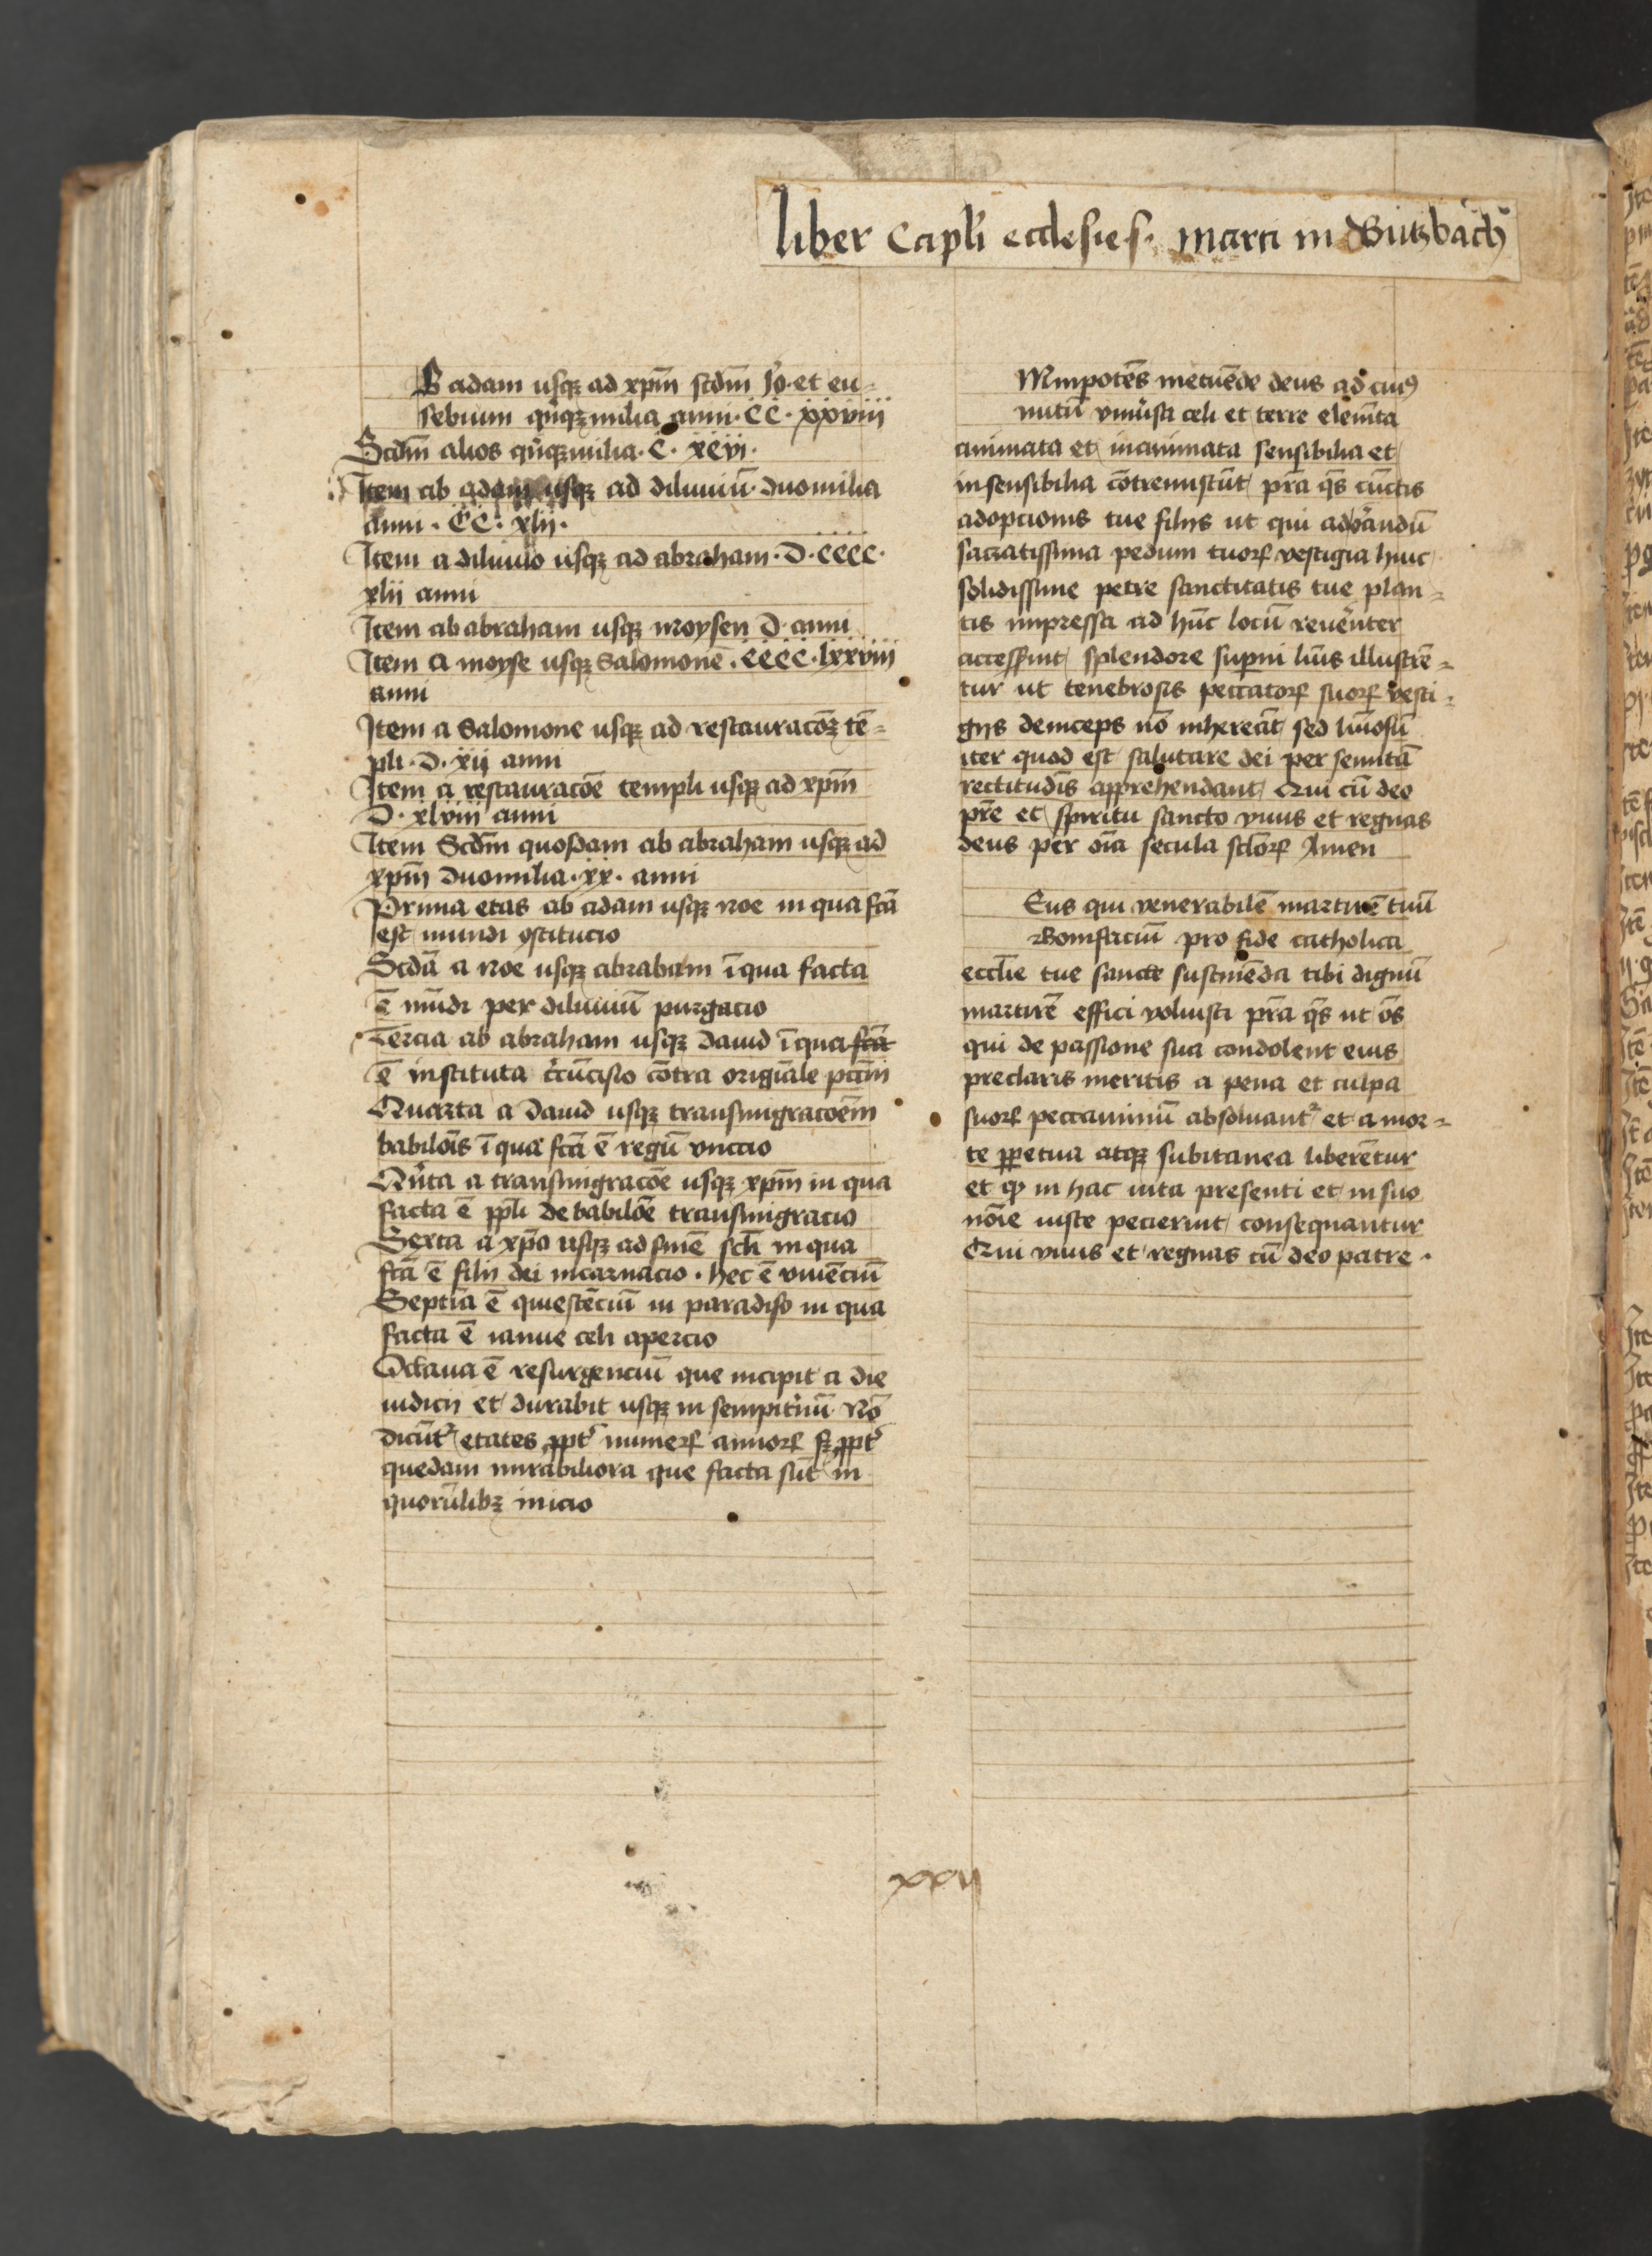 liber Capli ecclesie s. marci in Butzbach
B adam usqꝫ ad xpm̄ scdm̄ Jo. et eu=
sebium qͥnqꝫ milia anni . CC . xxviii
Scdm̄ alios qͥnqꝫ milia . C . xcvi .
Item ab adam usqꝫ ad diluuiū . duomilia
anni . CC . xlii .
Item a diluuio usqꝫ ad abraham . D . cccc .
xlii anni
Item ab abraham usqꝫ moysen D anni
Item a moyse usqꝫ Salomonē . cccc . lxxviii
anni
Item a Salomone usqꝫ ad restauracōꝫ tē=
pli . D . xii anni
Item a restauracōe templi usqꝫ ad xpm̄
D . xlviii anni
Item Scdm̄ quosdam ab abraham usqꝫ ad
xpm̄ duomilia . xx . anni
Prima etas ab adam usqꝫ noe in qua fcā
est mundi ꝯstitucio
Scdā a noe usqꝫ abraham ī qua facta
ē mūdi per diluuiū purgacio
Tercia ab abraham usqꝫ dauid ī qua fcā
ē instituta cͥcūcisio cōtra origīale pctm̄
Quarta a dauid usqꝫ transmigracoēm
babilōis ī qua fcā ē regū vnccio
Qͥnta a transmigracōe usqꝫ xpm̄ in qua
facta ē ppli de babilōe transmigracio
Sexta a xpo usqꝫ ad finē scli in qua
fcā ē filij dei incarnacio . hec ē viuēciū
Septīa ē quiescēciū in paradiso in qua
facta ē ianue celi apercio
Octaua ē resurgenciū que incipit a die
iudicij et durabit usqꝫ in sempit̾nū No
dicūt᷑ etates ꝓpt᷑ numerꝝ annorꝝ sꝫ ꝓpt᷑
quedam mirabiliora que facta sūt in
quorūlibꝫ inicio
Mnipotēs metuēde deus ad cuiꝰ
nutū vniu̾sa celi et terre elemēta
animata et inanimata sensibilia et
insensibilia cōtremiscūt p̄sta q̄s cūctis
adopcionis tue filijs ut qui adorandū
sacratissima pedum tuorꝝ vestigia huic
solidissime petre sanctitatis tue plan=
tis impressa ad hūc locū reuēnter
accesserint splendore superni lūis illustrē=
tur ut tenebrosis peccatorꝝ suorꝝ vesti=
gijs deinceps nō inhereāt sed lūiosū
iter quod est salutare dei per semitā
rectitudīs apprehendant Qui cū deo
pr̄e et spiritu sancto viuis et regnas
deus per oīa secula sclorꝝ Amen
Eus qui venerabilē martirē tuū
Bonifaciū pro fide catholica
eccl̄ie tue sancte sustinēda tibi dignū
martirē effici voluisti p̄sta q̄s ut oēs
qui de passione sua condolent eius
preclaris meritis a pena et culpa
suorꝝ peccaminū absoluant᷑ et a mor=
te ꝑpetua atqꝫ subitanea liberētur
et qͥ in hac uita presenti et in suo
noīe iuste pecierint consequantur
Qui viuis et regnas cū deo patre .